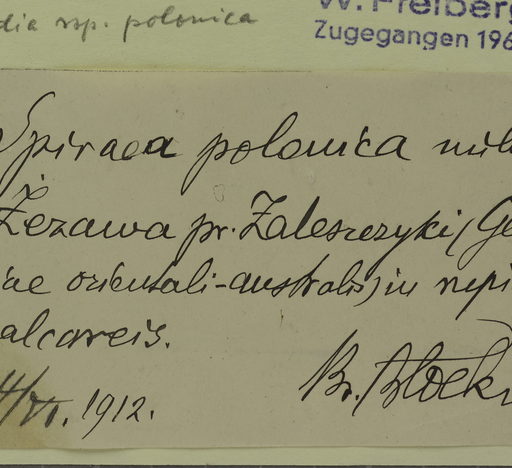 dia ssp. polonica
W. Freiberg
Zugegangen 196
Spiraea polonica mihi
Żezawa pr. Zaleszczyki (Ga
iae orientali-australis) in rupi
alcareis.
4/VI. 1912.
Br. Błocki